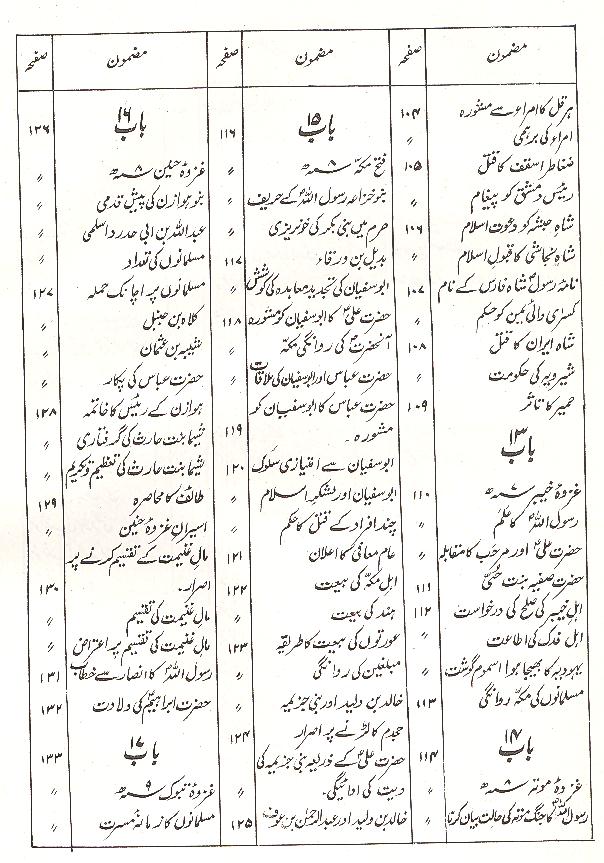 مضمون صفحہ مضمون صفحہ مضمون صفحہ
ہرقل کا امراء سے مشورہ ۱۰۴
امراء کی برہمی 〃
ضغاطر اسقف کا قتل ۱۰۵
رئیس دمشق کو پیغام 〃
شاہِ حبشہ کو دعوت اسلام ۱۰۶
شاہ نجاشی کا قبول اسلام 〃
نامۂ رسولؐ شاہ فارس کے نام ۱۰۷
کسریٰ والئ یمن کو حکم 〃
شاہ ایران کا قتل ۱۰۸
شیرویہ کی حکومت 〃
حمیر کا تاثر ۱۰۹
باب ۱۳
غزوۂ خیبر ۷ھ ۱۱۰
رسول اللہؐ کا علَم 〃
حضرت علیؓ اور مرحب کا مقابلہ 〃
حضرت صفیہ بنت حُیَیّ ۱۱۱
اہل خیبر کی صلح کی درخواست ۱۱۲
اہل فدک کی اطاعت 〃
یہودیہ کا بھیجا ہوا مسموم گوشت 〃
مسلمانوں کی مکہ روانگی ۱۱۳
باب ۱۴ ۱۱۴
غزوۂ موتہ ۸ھ 〃
رسول اللہؐ کا جنگ موتہ کی حالت بیان کرنا 〃
باب ۱۵ ۱۱۶
فتح مکہ ۸ھ 〃
بنو خزاعہ رسول اللہؐ کے حریف 〃
حرم میں بنی بکر کی خونریزی 〃
بدیل بن ورقاء ۱۱۷
ابوسفیان کی تجدید معاہدہ کی کوشش 〃
حضرت علیؓ کا ابوسفیان کو مشورہ ۱۱۸
آنحضرتؐ کی روانگی مکہ 〃
حضرت عباس اور ابوسفیان کی ملاقات 〃
حضرت عباس کا ابوسفیان کو
مشورہ۔ ۱۱۹
ابوسفیان سے امتیازی سلوک ۱۲۰
ابوسفیان اور لشکر اسلام 〃
چند افراد کے قتل کا حکم 〃
عام معافی کا اعلان ۱۲۱
اہل مکہ کی بیعت ۱۲۲
ہند کی بیعت 〃
عورتوں کی بیعت کا طریقہ ۱۲۳
مبلغین کی روانگی 〃
خالد بن ولید اور بنی جزیمہ 〃
جحدم کا لڑنے پر اصرار ۱۲۴
حضرت علیؓ کے ذریعہ بنی جزیمہ کی
دیت کی ادائیگی۔ 〃
خالد بن ولید اور عبدالرحمٰن بن عوف ۱۲۵
باب ۱۶ ۱۲۶
غزوۂ حنین ۸ھ 〃
بنو ہوازن کی پیش قدمی 〃
عبداللہ بن ابی حدرد اسلمی 〃
مسلمانوں کی تعداد 〃
مسلمانوں پر اچانک حملہ ۱۲۷
کلدہ بن حنبل 〃
شیبہ بن عثمان 〃
حضرت عباس کی پکار 〃
ہوازن کے رئیس کا خاتمہ ۱۲۸
شیما بنت حارث کی گرفتاری 〃
شیما بنت حارث کی تعظیم و تکریم 〃
طائف کا محاصرہ ۱۲۹
اسیران غزوۂ حنین 〃
مال غنیمت کے تقسیم کرنے پر
اصرار۔ ۱۳۰
مال غنیمت کی تقسیم 〃
مال غنیمت کی تقسیم پر اعتراض 〃
رسول اللہؐ کا انصار سے خطاب ۱۳۱
حضرت ابراہیمؑ کی ولادت ۱۳۲
باب ۱۷ ۱۳۳
غزوۂ تبوک ۹ھ 〃
مسلمانوں کا زمانۂ عسرت 〃